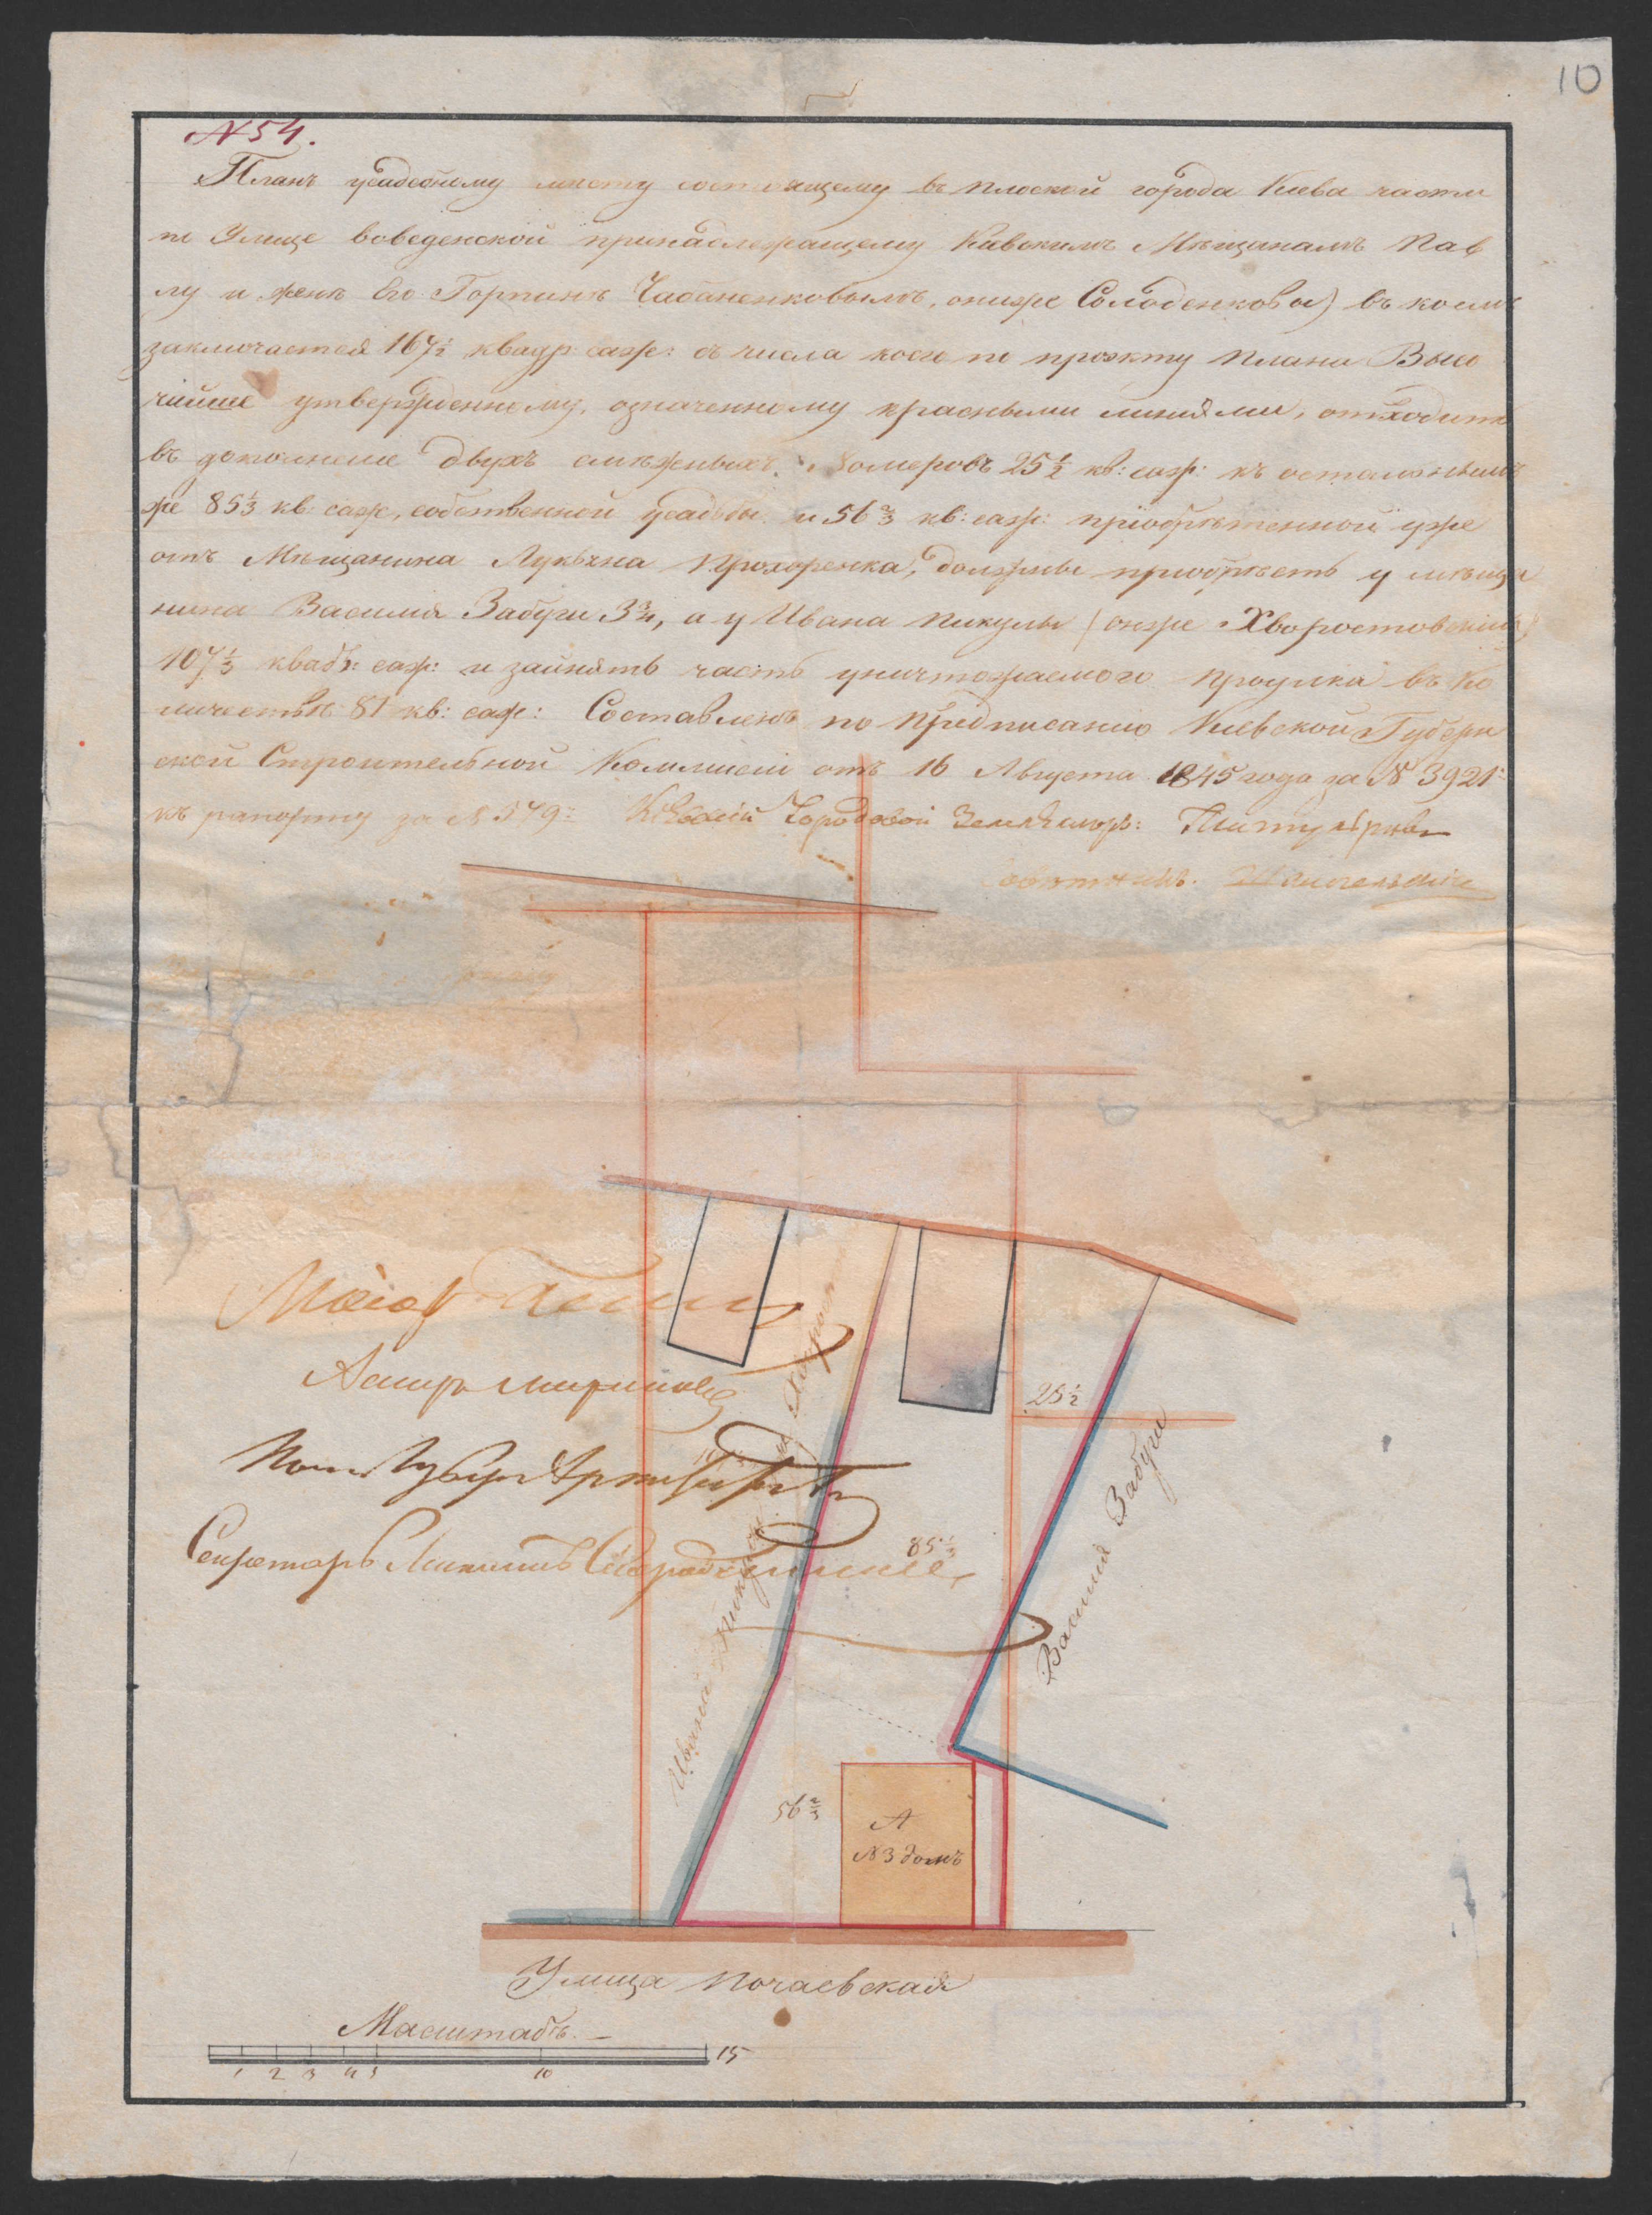 10
№ 54.
Планъ усадебному месту состоящему въ плоской города Киева части
по Улице воведенской принадлежащему Киевскимъ Мѣщанамъ Пав
лу и женѣ Его Горпинѣ Чабаненковымъ, ониже Солоденковы) въ коемъ
заключается 167½ квадр: саж: съ числа коего по проэкту плана Высо
чайше утвержденному, означенному красными линиями, отходитъ
въ дополнение двухъ смѣжныхъ Номеровъ 25½ кв: саж: къ остальнымъ
же 85⅓ кв: саж, собственной усадьбы и 56⅔ кв: саж: пріобрѣтенной уже
отъ Мѣщанина Лукьяна Прохоренка, должны приобрѣсть у мѣща
нина Василия Забуги 3¾, а у Ивана Пикулы (онже Хворостовскій)
107⅓ квад: саж: и занять часть уничтожаемого проулка въ Ко
личествѣ 81 кв: саж: Составленъ по Предписанию Киевской Губерн
ской Строительной Коммисіи отъ 16 Августа 1845 года за № 3921:
къ рапорту за № 379: Кіевскій Городовой Землемѣръ: Титулярный
Совѣтникъ.
Маіоръ
25½
Секретарь
85⅓
Иванъ Пикулы
Василия Забуги
56⅔
А
№3 домъ
Улица Почаевская
Масштабъ.
1 2 3 4 5 10 15